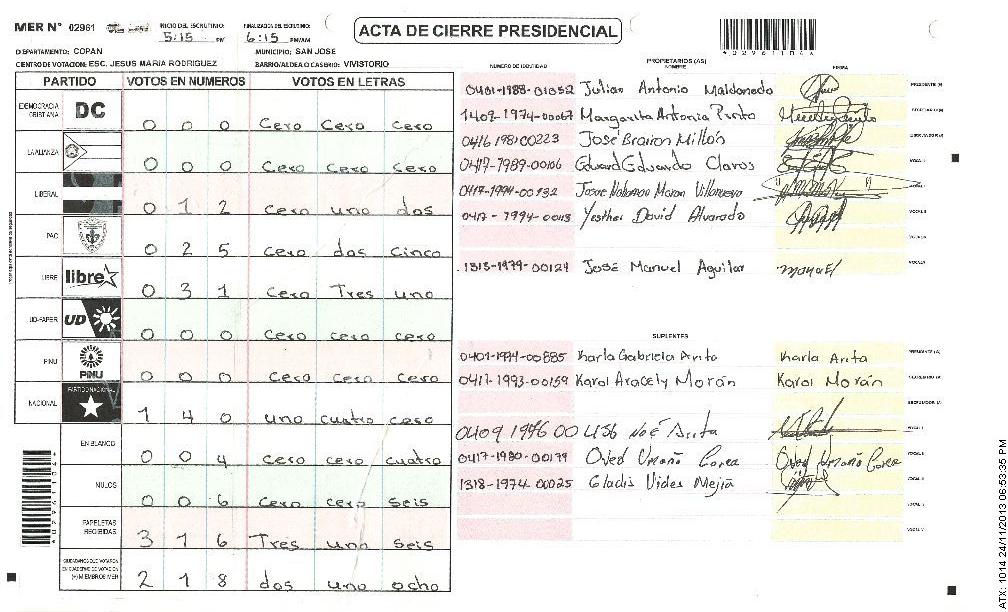 MER N° 02961 INICIO DEL ESCRUTINIO: 5:15 PM FINALIZACION DEL ESCRUTINIO: 6:15 PM/AM
ACTA DE CIERRE PRESIDENCIAL
DEPARTAMENTO: COPAN MUNICIPIO: SAN JOSE
CENTRO DE VOTACION: ESC. JESUS MARIA RODRIGUEZ BARRIO/ALDEA O CASERIO: VIVISTORIO
PARTIDO VOTOS EN NUMEROS VOTOS EN LETRAS
DEMOCRACIA CRISTIANA DC 0 0 0 Cero Cero Cero
LA ALIANZA 0 0 0 Cero Cero Cero
LIBERAL 0 1 2 Cero uno dos
PAC 0 2 5 Cero dos Cinco
LIBRE libre 0 3 1 Cero Tres uno
UD-FAPER UD 0 0 0 Cero Cero Cero
PINU PINU 0 0 0 Cero Cero Cero
NACIONAL PARTIDO NACIONAL 1 4 0 uno cuatro cero
EN BLANCO 0 0 4 Cero cero cuatro
NULOS 0 0 6 Cero cero seis
PAPELETAS RECIBIDAS 3 1 6 Tres uno seis
CIUDADANOS QUE VOTARON EN CUADERNO DE VOTACION (+) MIEMBROS MER 2 1 8 dos uno ocho
PROPIETARIOS (AS)
NUMERO DE IDENTIDAD NOMBRE FIRMA
0401-1988-01052 Julian Antonio Maldonado PRESIDENTE (A)
1402-1974-00067 Margarita Antonia SECRETARIO (A)
0416 1981 00223 José Millón ESCRUTADOR (A)
0417-1989-00106 Eduard Eduardo Claros VOCAL I
0417-1994-00132 Moran Villanueva
0417-1994-00113 David Alvarado VOCAL III
1313-1979-00129 José Manuel Aguilar manuel
SUPLENTES
0401-1994-00885 Karla Gabriela Arita Karla Arita PRESIDENTE (A)
0417-1993-00159 Karol Aracely Morán Karol Morán SECRETARIO (A)
ESCRUTADOR (A)
0409 1976 00 456 Noé Arita VOCAL I
0417-1980-00179 Oved Umaña Corea Oved Umaña Corea VOCAL II
1318-1974-00025 Gladis Vides Mejia
ATX: 1014 24/11/2013 06:53:35 PM